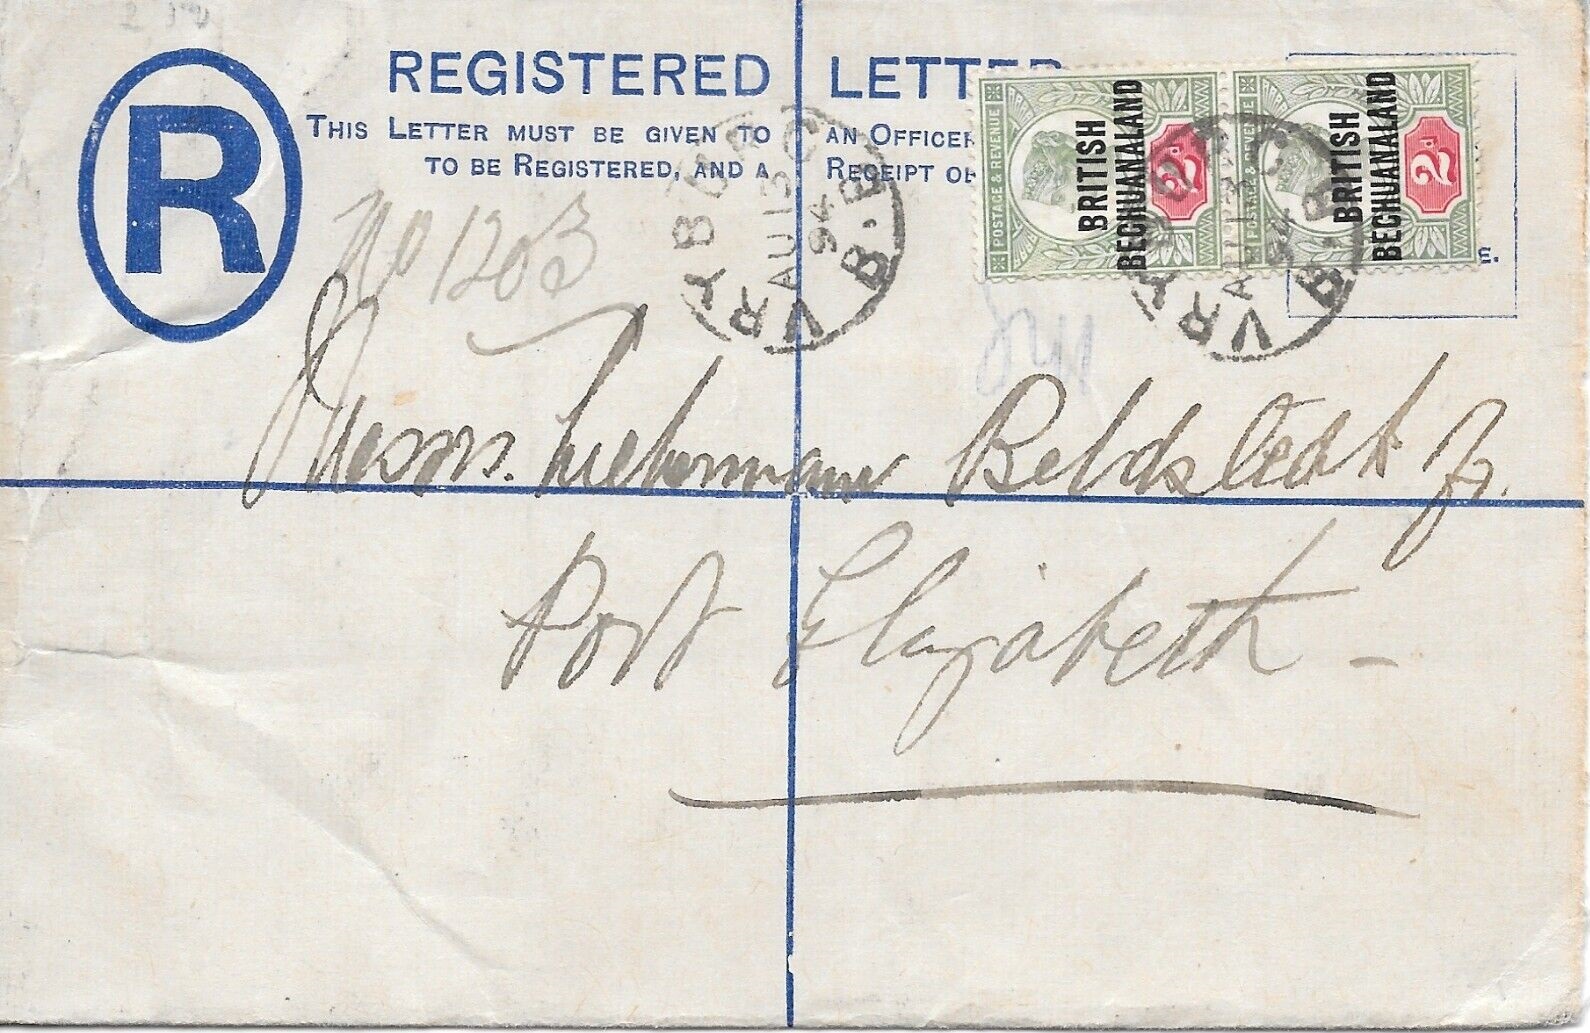 R
REGISTERED LETTER
THIS LETTER MUST BE GIVEN TO AN OFFICER
TO BE REGISTERED, AND A RECEIPT OF
POSTAGE & REVENUE
BRITISH
BECHUANALAND
2d
POSTAGE & REVENUE
BRITISH
BECHUANALAND
2d
VRYBURG
C
AU 13
94
B.B
VRYBURG
C
AU 13
94
B.B
No 1203
Messrs. Lieberman Beldstedt &
Port Elizabeth –